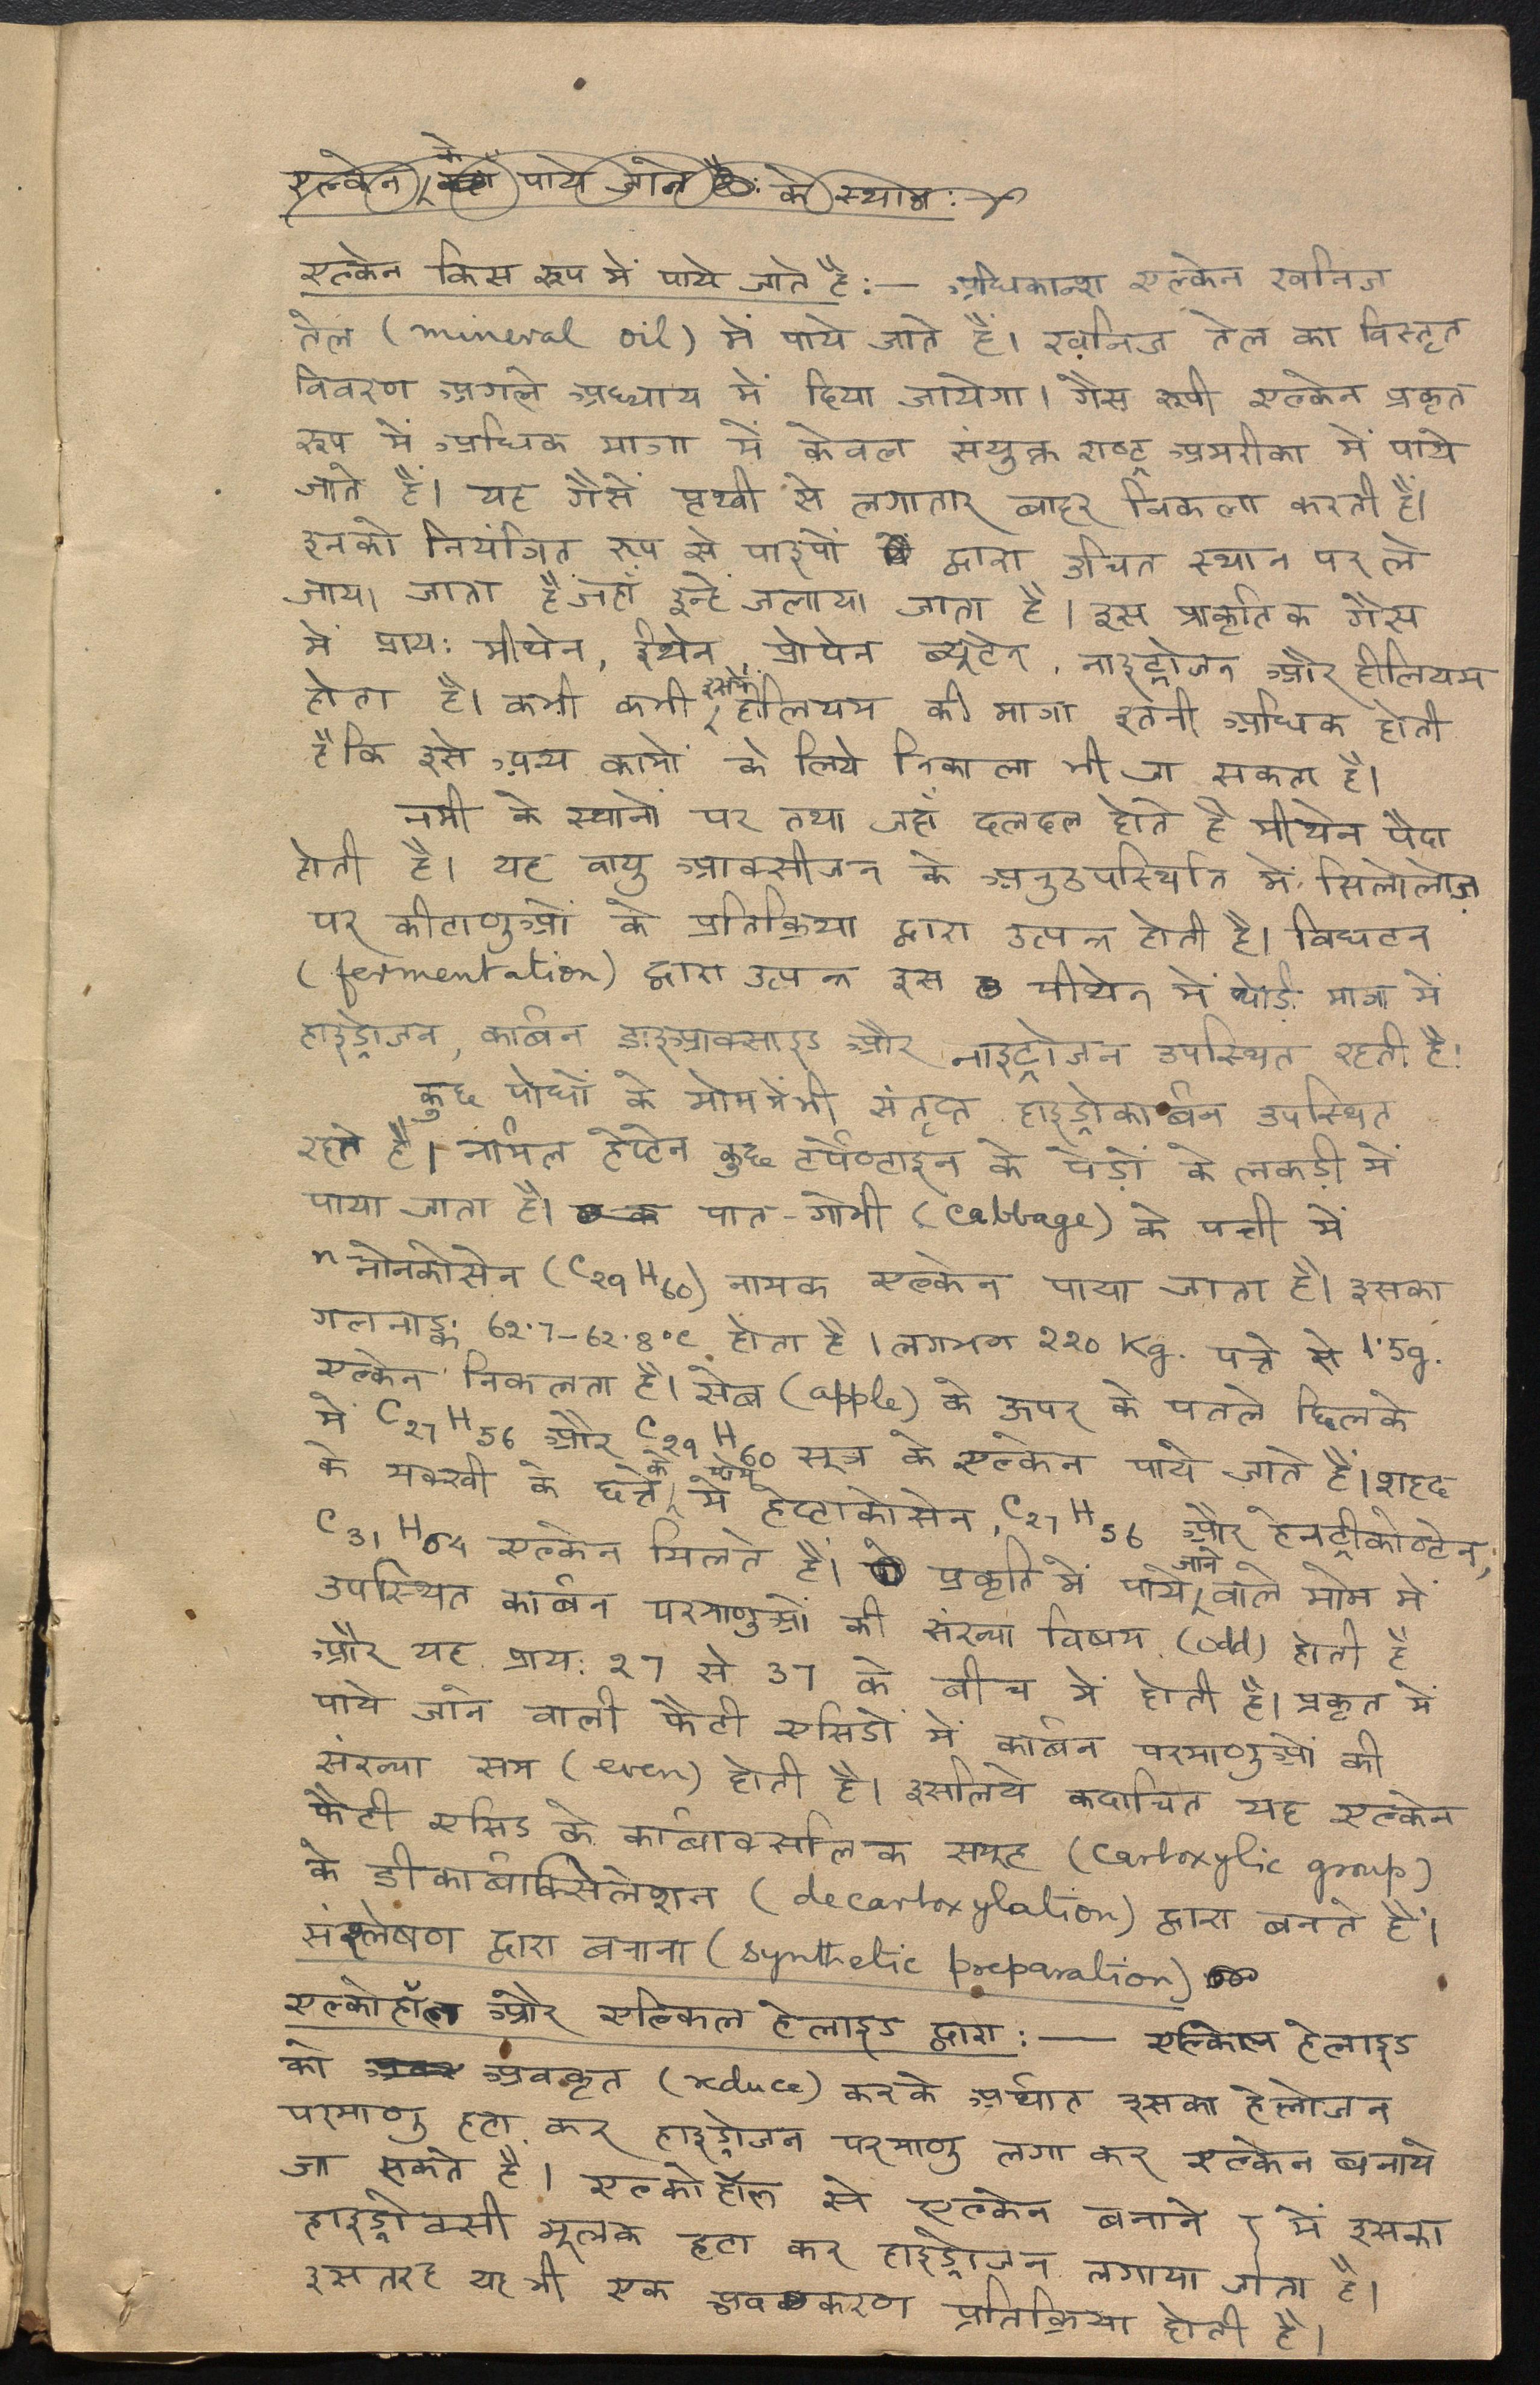 एल्केन के पाये जाने के स्थान :-
एल्केन किस रूप में पाये जाते है :— अधिकान्श एल्केन खनिज
तेल (mineral oil) में पाये जाते हैं। खनिज तेल का विस्तृत
विवरण अगले अध्याय में दिया जायेगा। गैस रूपी एल्केन प्रकृत
रूप में अधिक मात्रा में केवल संयुक्त राष्ट्र अमरीका में पाये
जाते हैं। यह गैसें पृथ्वी से लगातार बाहर निकला करती हैं।
इनको नियंत्रित रूप से पाइपों द्वारा उचित स्थान पर ले
जाया जाता है जहाँ इन्हें जलाया जाता है। इस प्राकृतिक गैस
में प्राय: मीथेन, ईथेन, प्रोपेन ब्यूटेन, नाइट्रोजन और हीलियम
होता है। कभी कभी इसमें हीलियम की मात्रा इतनी अधिक होती
है कि इसे अन्य कामों के लिये निकाला भी जा सकता है।
नमी के स्थानों पर तथा जहाँ दलदल होते है मीथेन पैदा
होती है। यह वायु आक्सीजन के अनुउपस्थिति में सिलोलोज़
पर कीटाणुओं के प्रतिक्रिया द्वारा उत्पन्न होती है। विघटन
(fermentation) द्वारा उत्पन्न इस मीथेन में थोड़ी मात्रा में
हाईड्रोजन, कार्बन डाइआक्साइड और नाइट्रोजन उपस्थित रहती है।
कुछ पौधों के मोम में भी संतृप्त हाइड्रोकार्बन उपस्थित
रहते है। नार्मल हेप्टेन कुछ टर्पेण्टाइन के पेड़ों के लकड़ी में
पाया जाता है। पात-गोभी (cabbage) के पत्ती में
n नोनकोसेन (C29H60) नामक एल्केन पाया जाता है। इसका
गलनाङ्क 62.7-62.8°C होता है। लगभग 220 Kg. पत्ते से 1.5g.
एल्केन निकलता है। सेब (apple) के ऊपर के पतले छिलके
में C27H56 और C29H60 सूत्र के एल्केन पाये जाते हैं। शहद
के मक्खी के छत्ते के मोम में हेप्टाकोसेन, C27H56 और हेनट्रीकोण्टेन,
C31H64 एल्केन मिलते हैं। प्रकृति में पाये जाने वाले मोम में
उपस्थित कार्बन परमाणुओं की संख्या विषम (odd) होती है
और यह प्राय: 27 से 37 के बीच में होती है। प्रकृत में
पाये जाने वाली फैटी एसिडों में कार्बन परमाणुओं की
संख्या सम (even) होती है। इसलिये कदाचित यह एल्केन
फैटी एसिड के कार्बाक्सलिक समूह (carboxylic group)
के डीकार्बाक्सिलेशन (decarboxylation) द्वारा बनते हैं।
संश्लेषण द्वारा बनाना (synthetic preparation)
एल्कोहॉल और एल्किल हेलाइड द्वारा :— एल्किल हेलाइड
को अवकृत (reduce) करके अर्थात इसका हेलोजन
परमाणु हटा कर हाइड्रोजन परमाणु लगा कर एल्केन बनाये
जा सकते है। एल्कोहॉल से एल्केन बनाने में इसका
हाइड्रोक्सी मूलक हटा कर हाइड्रोजन लगाया जाता है।
इस तरह यह भी एक अवकरण प्रतिक्रिया होती है।